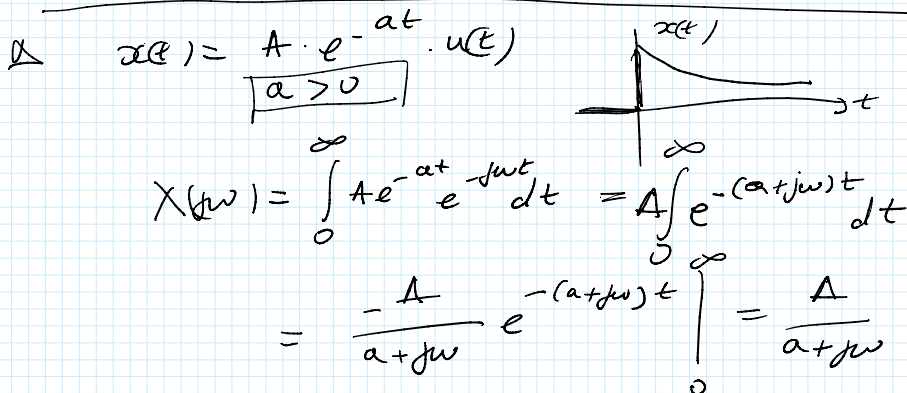 x(t) = A · e^{-at} · u(t)
x(t)
a > 0
t
X(jω) = ∫_0^∞ A e^{-at} e^{-jωt} dt = A ∫_0^∞ e^{-(a+jω)t} dt
= \frac{-A}{a+jω} e^{-(a+jω)t} |_0^∞ = \frac{A}{a+jω}